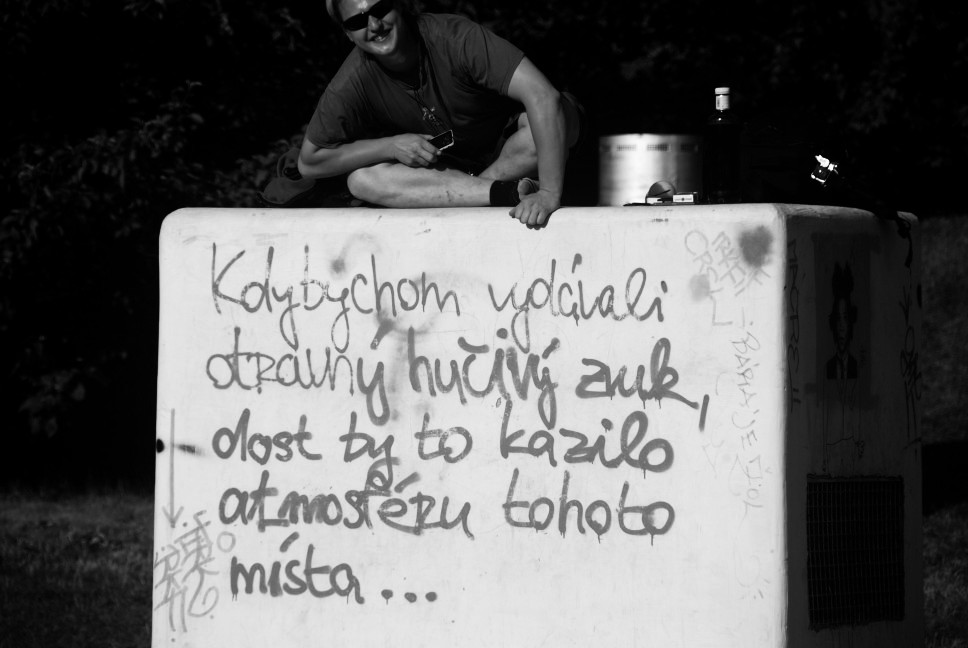 Kdybychom vydávali
otravný hučivý zvuk,
dost by to kazilo
atmosféru tohoto
místa...